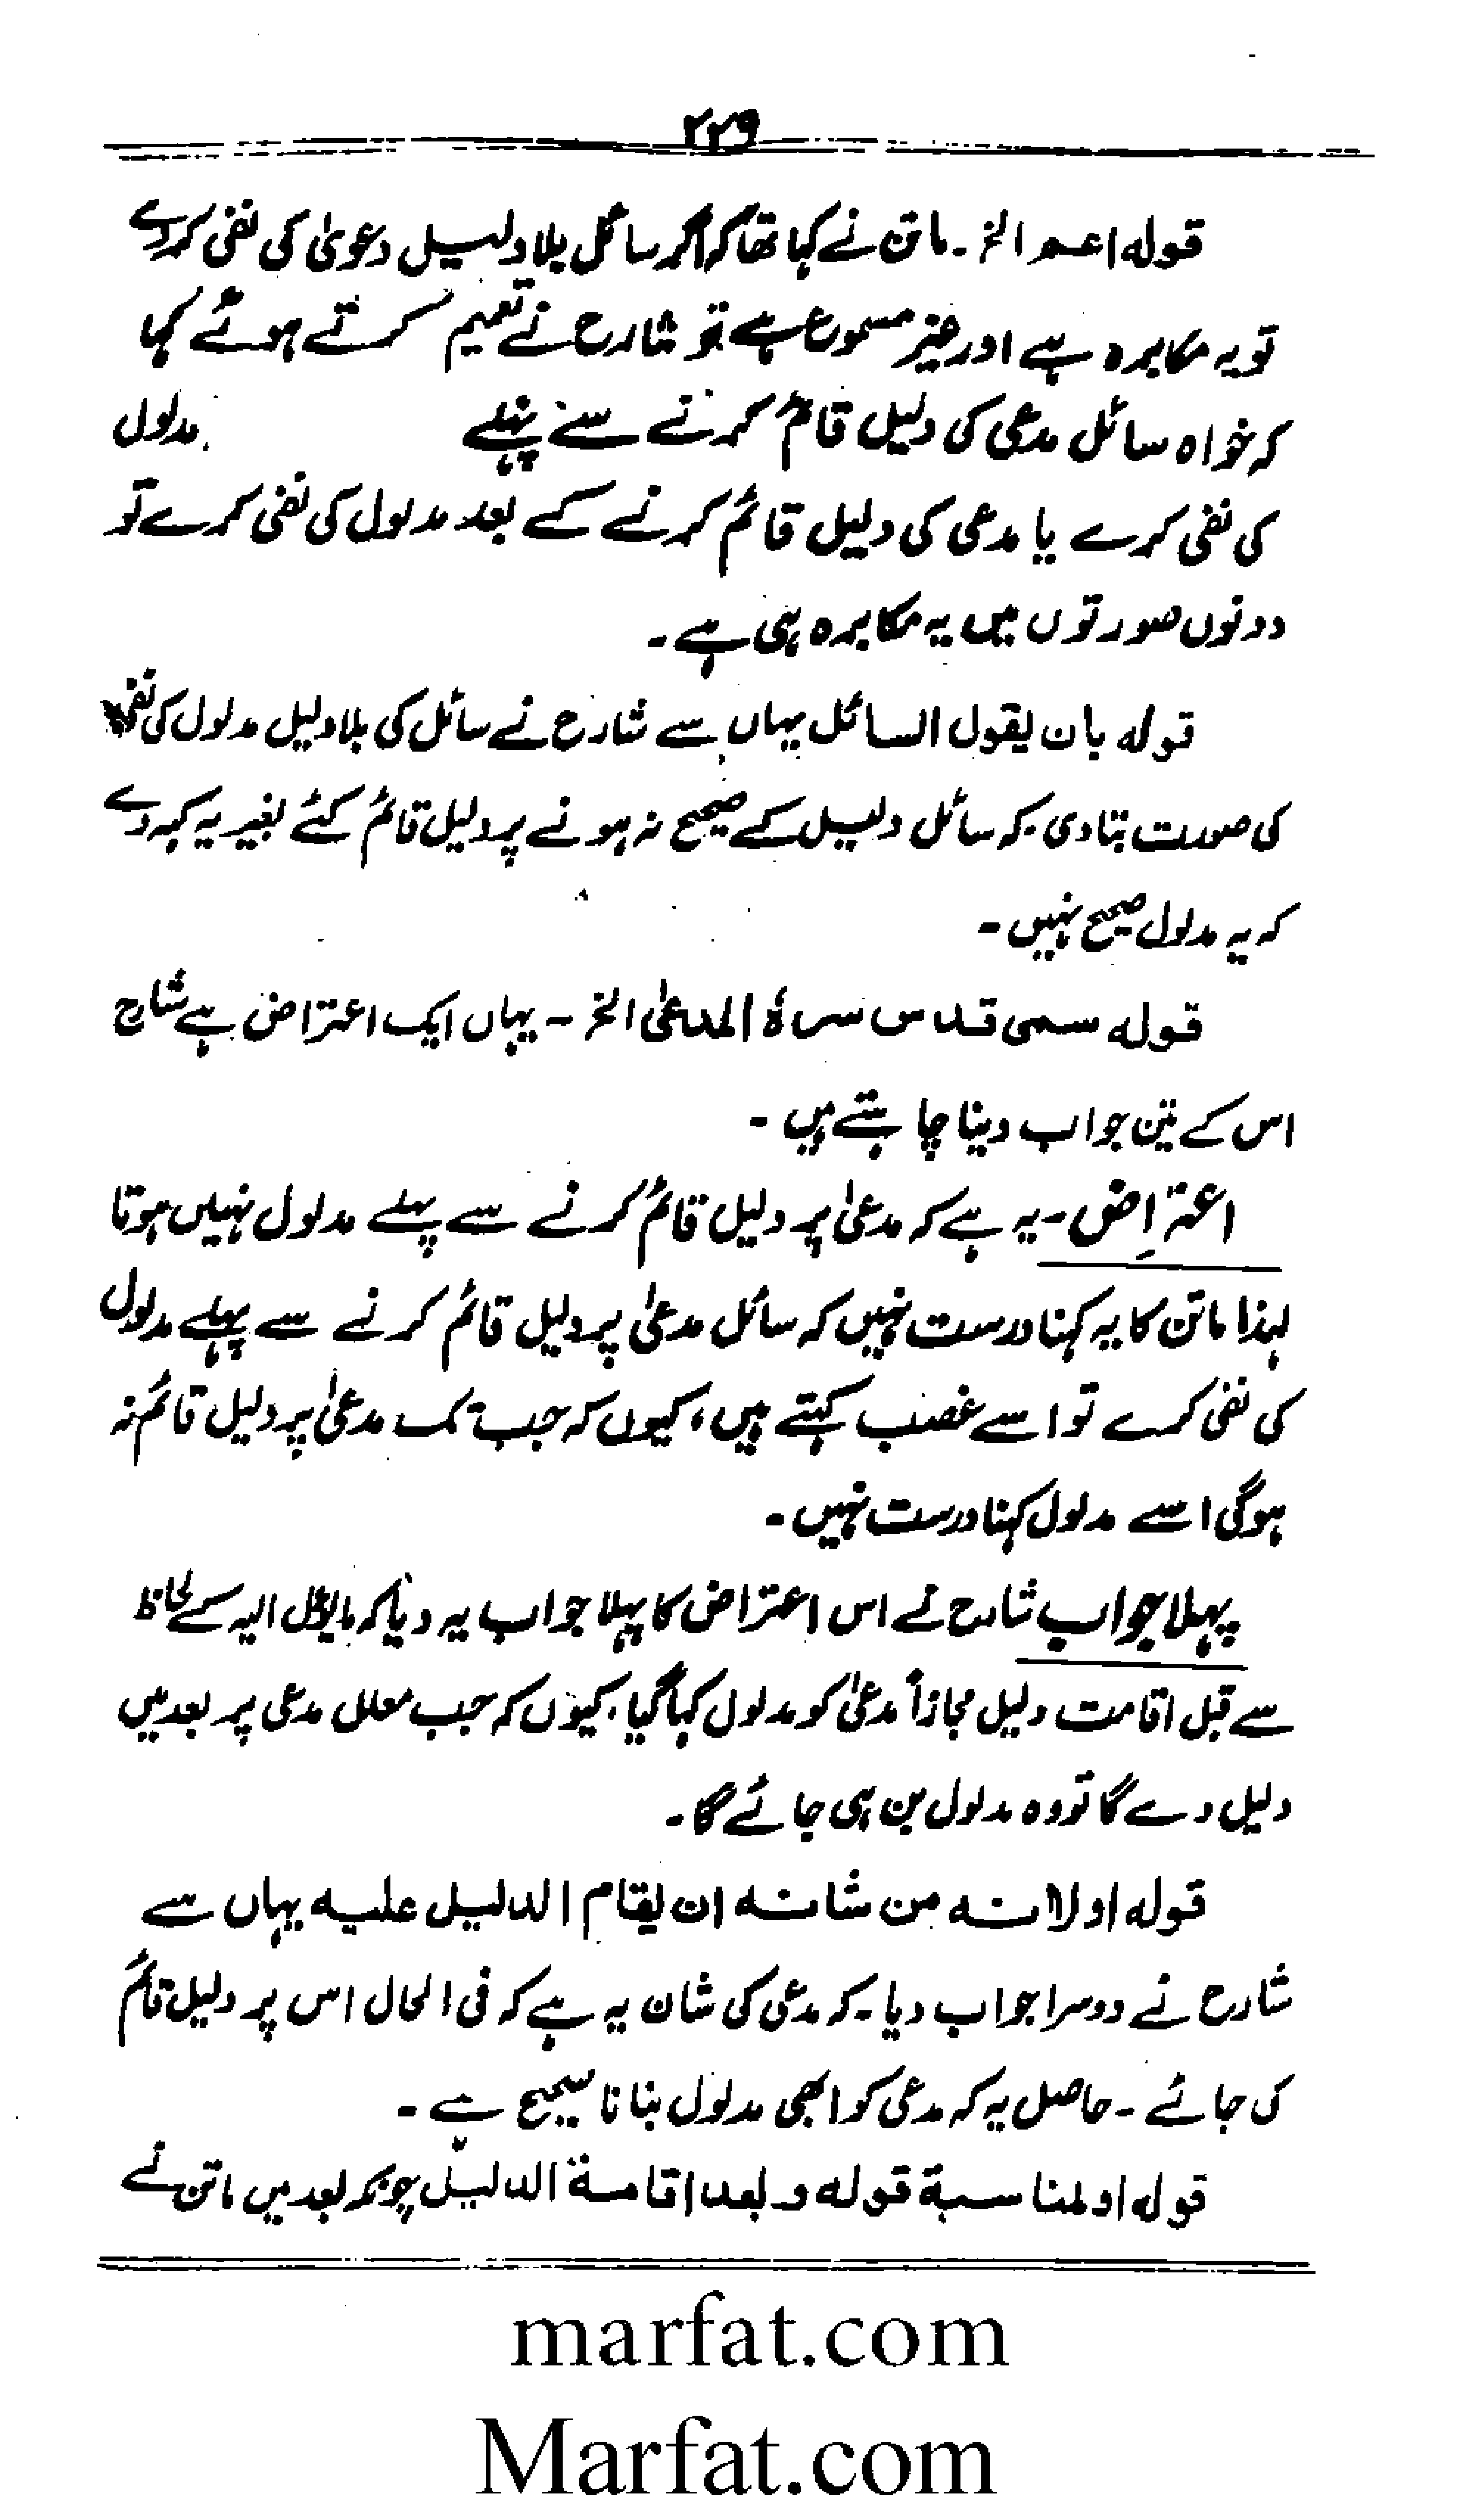 ۲۲۹
قوله اعم الخ۔ ماتن نے کہا تھا کہ اگر سائل بلا دلیل دعویٰ کی نفی کردے
تو یہ مکابرہ ہے اور غیر مسموع ہے تو شارح نے تعمیم کرتے ہوئے کہا
کہ خواہ سائل مدعی کی دلیل قائم کرنے سے پہلے مدلول
کی نفی کرے یا مدعی کی دلیل قائم کرنے کے بعد مدلول کی نفی کرے تو
دونوں صورتوں میں یہ مکابرہ ہی ہے۔
قوله بان يقول السائل یہاں سے شارح نے سائل کی بلا دلیل مدلول کی نفی
کی صورت بتا دی۔ کہ سائل دلیل کے صحیح نہ ہونے پر دلیل قائم کئے بغیر یہ کہہ دے
کہ یہ مدلول صحیح نہیں۔
قوله سمى قدس سره المدعىٰ الخ۔ یہاں ایک اعتراض ہے شارح
اس کے تین جواب دینا چاہتے ہیں۔
اعتراض۔ یہ ہے کہ مدعیٰ پر دلیل قائم کرنے سے پہلے مدلول نہیں ہوتا
لہذا ماتن کا یہ کہنا درست نہیں کہ سائل مدعیٰ پر دلیل قائم کرنے سے پہلے مدلول
کی نفی کرے تو اسے غصب کہتے ہیں، کیوں کہ جب تک مدعیٰ پر دلیل قائم نہ
ہوگی اسے مدلول کہنا درست نہیں۔
پہلا جواب شارح نے اس اعتراض کا پہلا جواب یہ دیا کہ مایؤل الیہ کے لحاظ
سے قبل اقامت دلیل مجازاً مدعیٰ کو مدلول کہا گیا، کیوں کہ جب معلل مدعی پر بعد میں
دلیل دے گا تو وہ مدلول بن ہی جائے گا۔
قوله اولانه من شانه ان يقام الدليل عليه یہاں سے
شارح نے دوسرا جواب دیا۔ کہ مدعی کی شان یہ ہے کہ فی الحال اس پر دلیل قائم
کی جائے۔ حاصل یہ کہ مدعی کو ابھی مدلول بنانا صحیح ہے۔
قوله او لمناسبة قوله وبعد اقامة الدليل چونکہ بعد میں ماتن نے
marfat.com
Marfat.com